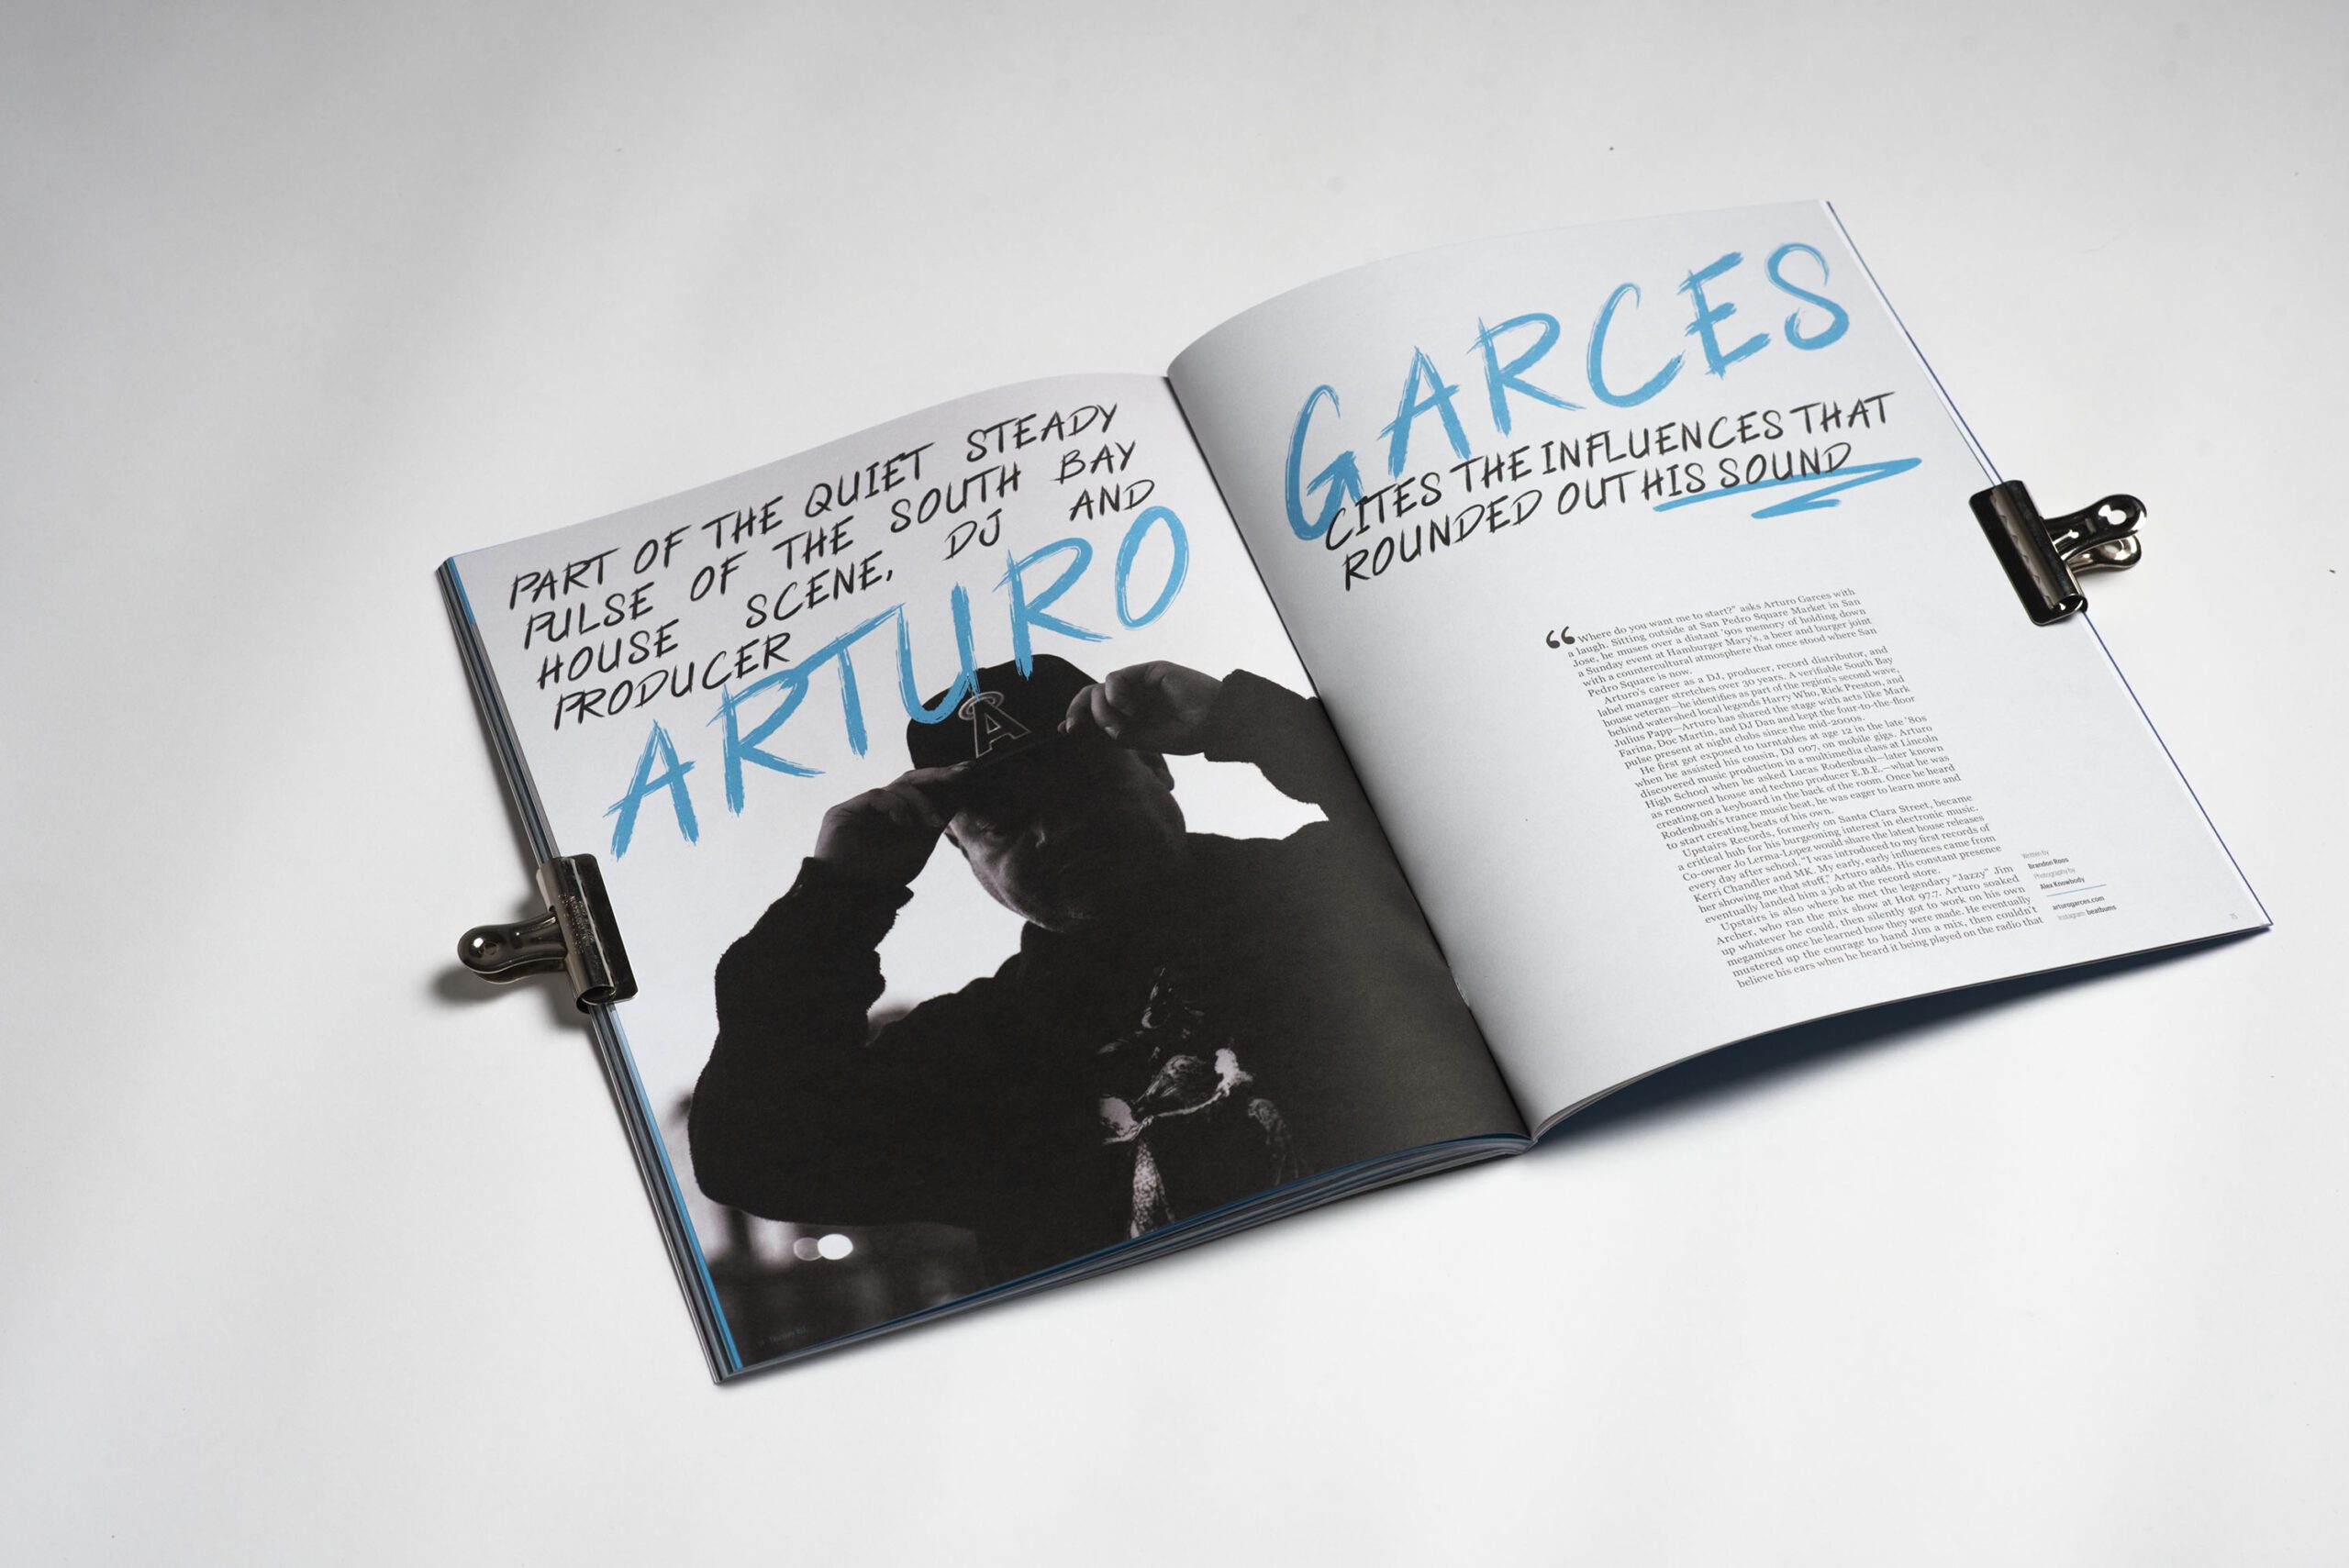 PART OF THE QUIET STEADY
PULSE OF THE SOUTH BAY
HOUSE SCENE, DJ AND
PRODUCER
ARTURO
A
GARCES
CITES THE INFLUENCES THAT
ROUNDED OUT HIS SOUND
“Where do you want me to start?” asks Arturo Garces with
a laugh. Sitting outside at San Pedro Square Market in San
Jose, he muses over a distant ’90s memory of holding down
a Sunday event at Hamburger Mary’s, a beer and burger joint
with a countercultural atmosphere that once stood where San
Pedro Square is now.
Arturo’s career as a DJ, producer, record distributor, and
label manager stretches over 30 years. A verifiable South Bay
house veteran—he identifies as part of the region’s second wave,
behind watershed local legends Harry Who, Rick Preston, and
Julius Papp—Arturo has shared the stage with acts like Mark
Farina, Doc Martin, and DJ Dan and kept the four-to-the-floor
pulse present at night clubs since the mid-2000s.
He first got exposed to turntables at age 12 in the late ’80s
when he assisted his cousin, DJ 007, on mobile gigs. Arturo
discovered music production in a multimedia class at Lincoln
High School when he asked Lucas Rodenbush—later known
as renowned house and techno producer E.B.E.—what he was
creating on a keyboard in the back of the room. Once he heard
Rodenbush’s trance music beat, he was eager to learn more and
to start creating beats of his own.
Upstairs Records, formerly on Santa Clara Street, became
a critical hub for his burgeoning interest in electronic music.
Co-owner Jo Lerma-Lopez would share the latest house releases
every day after school. “I was introduced to my first records of
Kerri Chandler and MK. My early, early influences came from
her showing me that stuff,” Arturo adds. His constant presence
eventually landed him a job at the record store.
Upstairs is also where he met the legendary “Jazzy” Jim
Archer, who ran the mix show at Hot 97.7. Arturo soaked
up whatever he could, then silently got to work on his own
megamixes once he learned how they were made. He eventually
mustered up the courage to hand Jim a mix, then couldn’t
believe his ears when he heard it being played on the radio that
Written by
Brandon Roos
Photography by
Alex Knowbody
arturogarces.com
Instagram beatbums